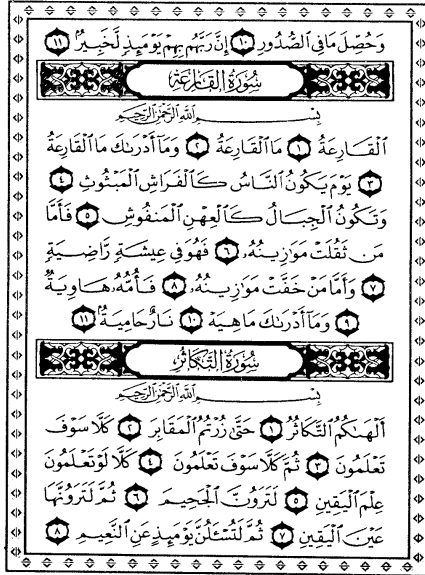 وَحُصِّلَ مَا فِي ٱلصُّدُورِ ١٠ إِنَّ رَبَّهُم بِهِمْ يَوْمَئِذٍ لَّخَبِيرٌۢ ١١
سُورَةُ ٱلقَارِعَة
بِسْمِ ٱللَّهِ ٱلرَّحْمَٰنِ ٱلرَّحِيمِ
ٱلْقَارِعَةُ ١ مَا ٱلْقَارِعَةُ ٢ وَمَآ أَدْرَىٰكَ مَا ٱلْقَارِعَةُ
٣ يَوْمَ يَكُونُ ٱلنَّاسُ كَٱلْفَرَاشِ ٱلْمَبْثُوثِ ٤
وَتَكُونُ ٱلْجِبَالُ كَٱلْعِهْنِ ٱلْمَنفُوشِ ٥ فَأَمَّا
مَن ثَقُلَتْ مَوَٰزِينُهُۥ ٦ فَهُوَ فِي عِيشَةٍ رَّاضِيَةٍ
٧ وَأَمَّا مَنْ خَفَّتْ مَوَٰزِينُهُۥ ٨ فَأُمُّهُۥ هَاوِيَةٌ
٩ وَمَآ أَدْرَىٰكَ مَا هِيَهْ ١٠ نَارٌ حَامِيَةٌۢ ١١
سُورَةُ ٱلتَّكَاثُر
بِسْمِ ٱللَّهِ ٱلرَّحْمَٰنِ ٱلرَّحِيمِ
أَلْهَىٰكُمُ ٱلتَّكَاثُرُ ١ حَتَّىٰ زُرْتُمُ ٱلْمَقَابِرَ ٢ كَلَّا سَوْفَ
تَعْلَمُونَ ٣ ثُمَّ كَلَّا سَوْفَ تَعْلَمُونَ ٤ كَلَّا لَوْ تَعْلَمُونَ
عِلْمَ ٱلْيَقِينِ ٥ لَتَرَوُنَّ ٱلْجَحِيمَ ٦ ثُمَّ لَتَرَوُنَّهَا
عَيْنَ ٱلْيَقِينِ ٧ ثُمَّ لَتُسْـَٔلُنَّ يَوْمَئِذٍ عَنِ ٱلنَّعِيمِ ٨